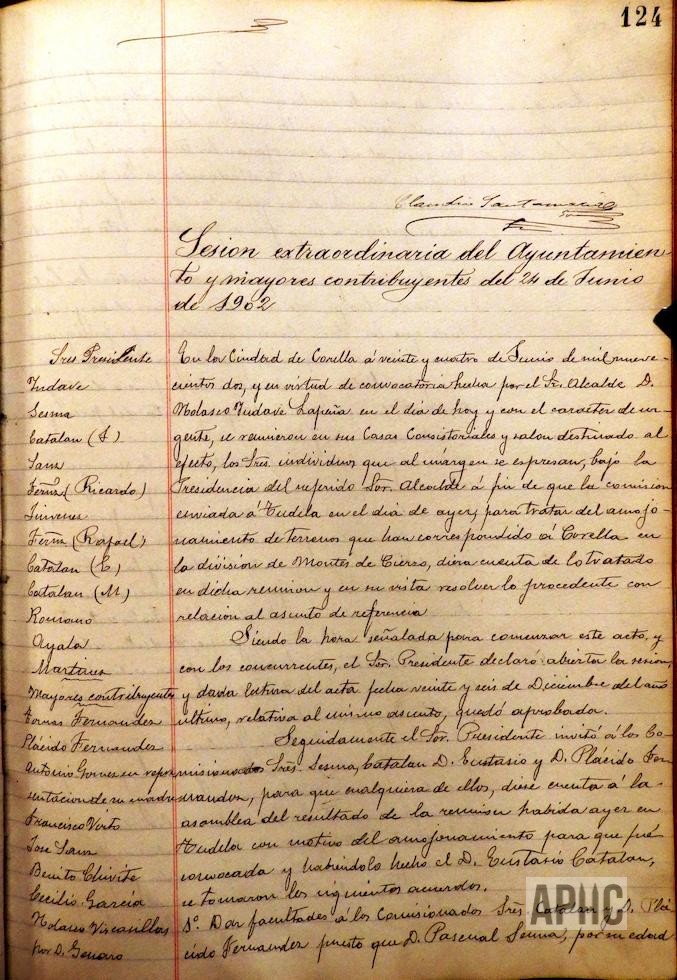 124
Claudio Santamaría
Sesion extraordinaria del Ayuntamien-
to y mayores contribuyentes del 24 de Junio
de 1902
Sres Presidente
Yudave
Sesma
Catalan (S)
Sanz
Ferñz (Ricardo)
Jimenez
Ferñz (Rafael)
Catalan (E)
Catalan (M)
Romano
Ayala
Martinez
Mayores contribuyentes
Tomas Fernandez
Plácido Fernandez
Antonio Gomez en repre
sentacion de su madre
Francisco Virto
Jose Sanz
Benito Chivite
Cecilio García
Nolasco Viscasillas
por D. Genaro
En la Ciudad de Corella á veinte y cuatro de Junio de mil nueve-
cientos dos, y en virtud de convocatoria hecha por el Sr. Alcalde D.
Nolasco Yudave Lapeña en el dia de hoy y con el caracter de ur-
gente, se reunieron en sus Casas Consistoriales y salon destinado al
efecto, los Sres. individuos que al márgen se espresan, bajo la
Presidencia del referido Sor. Alcalde á fin de que la comision
enviada á Tudela en el dia de ayer, para tratar del amojo-
namiento de terrenos que han correspondido á Corella en
la division de Montes de Cierzo, diera cuenta de lo tratado
en dicha reunion y en su vista resolver lo procedente con
relacion al asunto de referencia
Siendo la hora señalada para comenzar este acto, y
con los concurrentes, el Sor. Presidente declaró abierta la sesion,
y dada lectura del acta fecha veinte y seis de Diciembre del año
ultimo, relativa al mismo asunto, quedó aprobada.
Seguidamente el Sor. Presidente invitó á los Co-
misionados Sres. Sesma, Catalan D. Eustasio y D. Plácido Fer
nandez, para que cualquiera de ellos, diese cuenta á la
asamblea del resultado de la reunion habida ayer en
Tudela con motivo del amojonamiento para que fué
convocada y habiéndolo hecho el D. Eustasio Catalan,
se tomaron los siguientes acuerdos.
Dar facultades á los Comisionados Sres. Catalan y D. Plá
cido Fernandez puesto que D. Pascual Sesma, por su edad
APHC